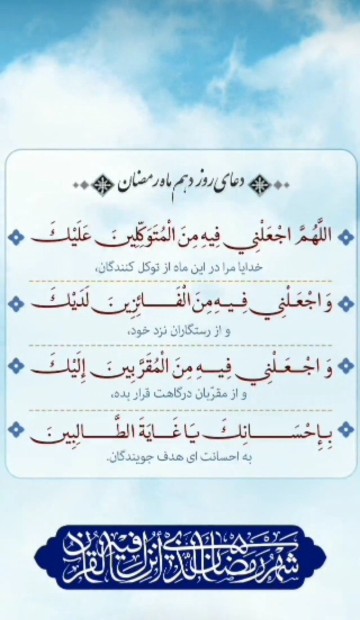 دعای روز دهم ماه رمضان
اللَّهُمَّ اجْعَلْنِي فِيهِ مِنَ الْمُتَوَكِّلِينَ عَلَيْكَ
خدایا مرا در این ماه از توکل کنندگان،
وَ اجْعَلْنِي فِيهِ مِنَ الْفَائِزِينَ لَدَيْكَ
و از رستگاران نزد خود،
وَ اجْعَلْنِي فِيهِ مِنَ الْمُقَرَّبِينَ إِلَيْكَ
و از مقرّبان درگاهت قرار بده،
بِإِحْسَانِكَ يَا غَايَةَ الطَّالِبِينَ
به احسانت ای هدف جویندگان.
شهر رمضان الذي أنزل فيه القرآن